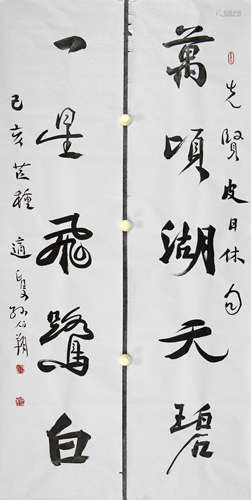 先賢皮日休句
萬頃湖天碧
一星飛鷺白
己亥芒種 適叟孫伯翔